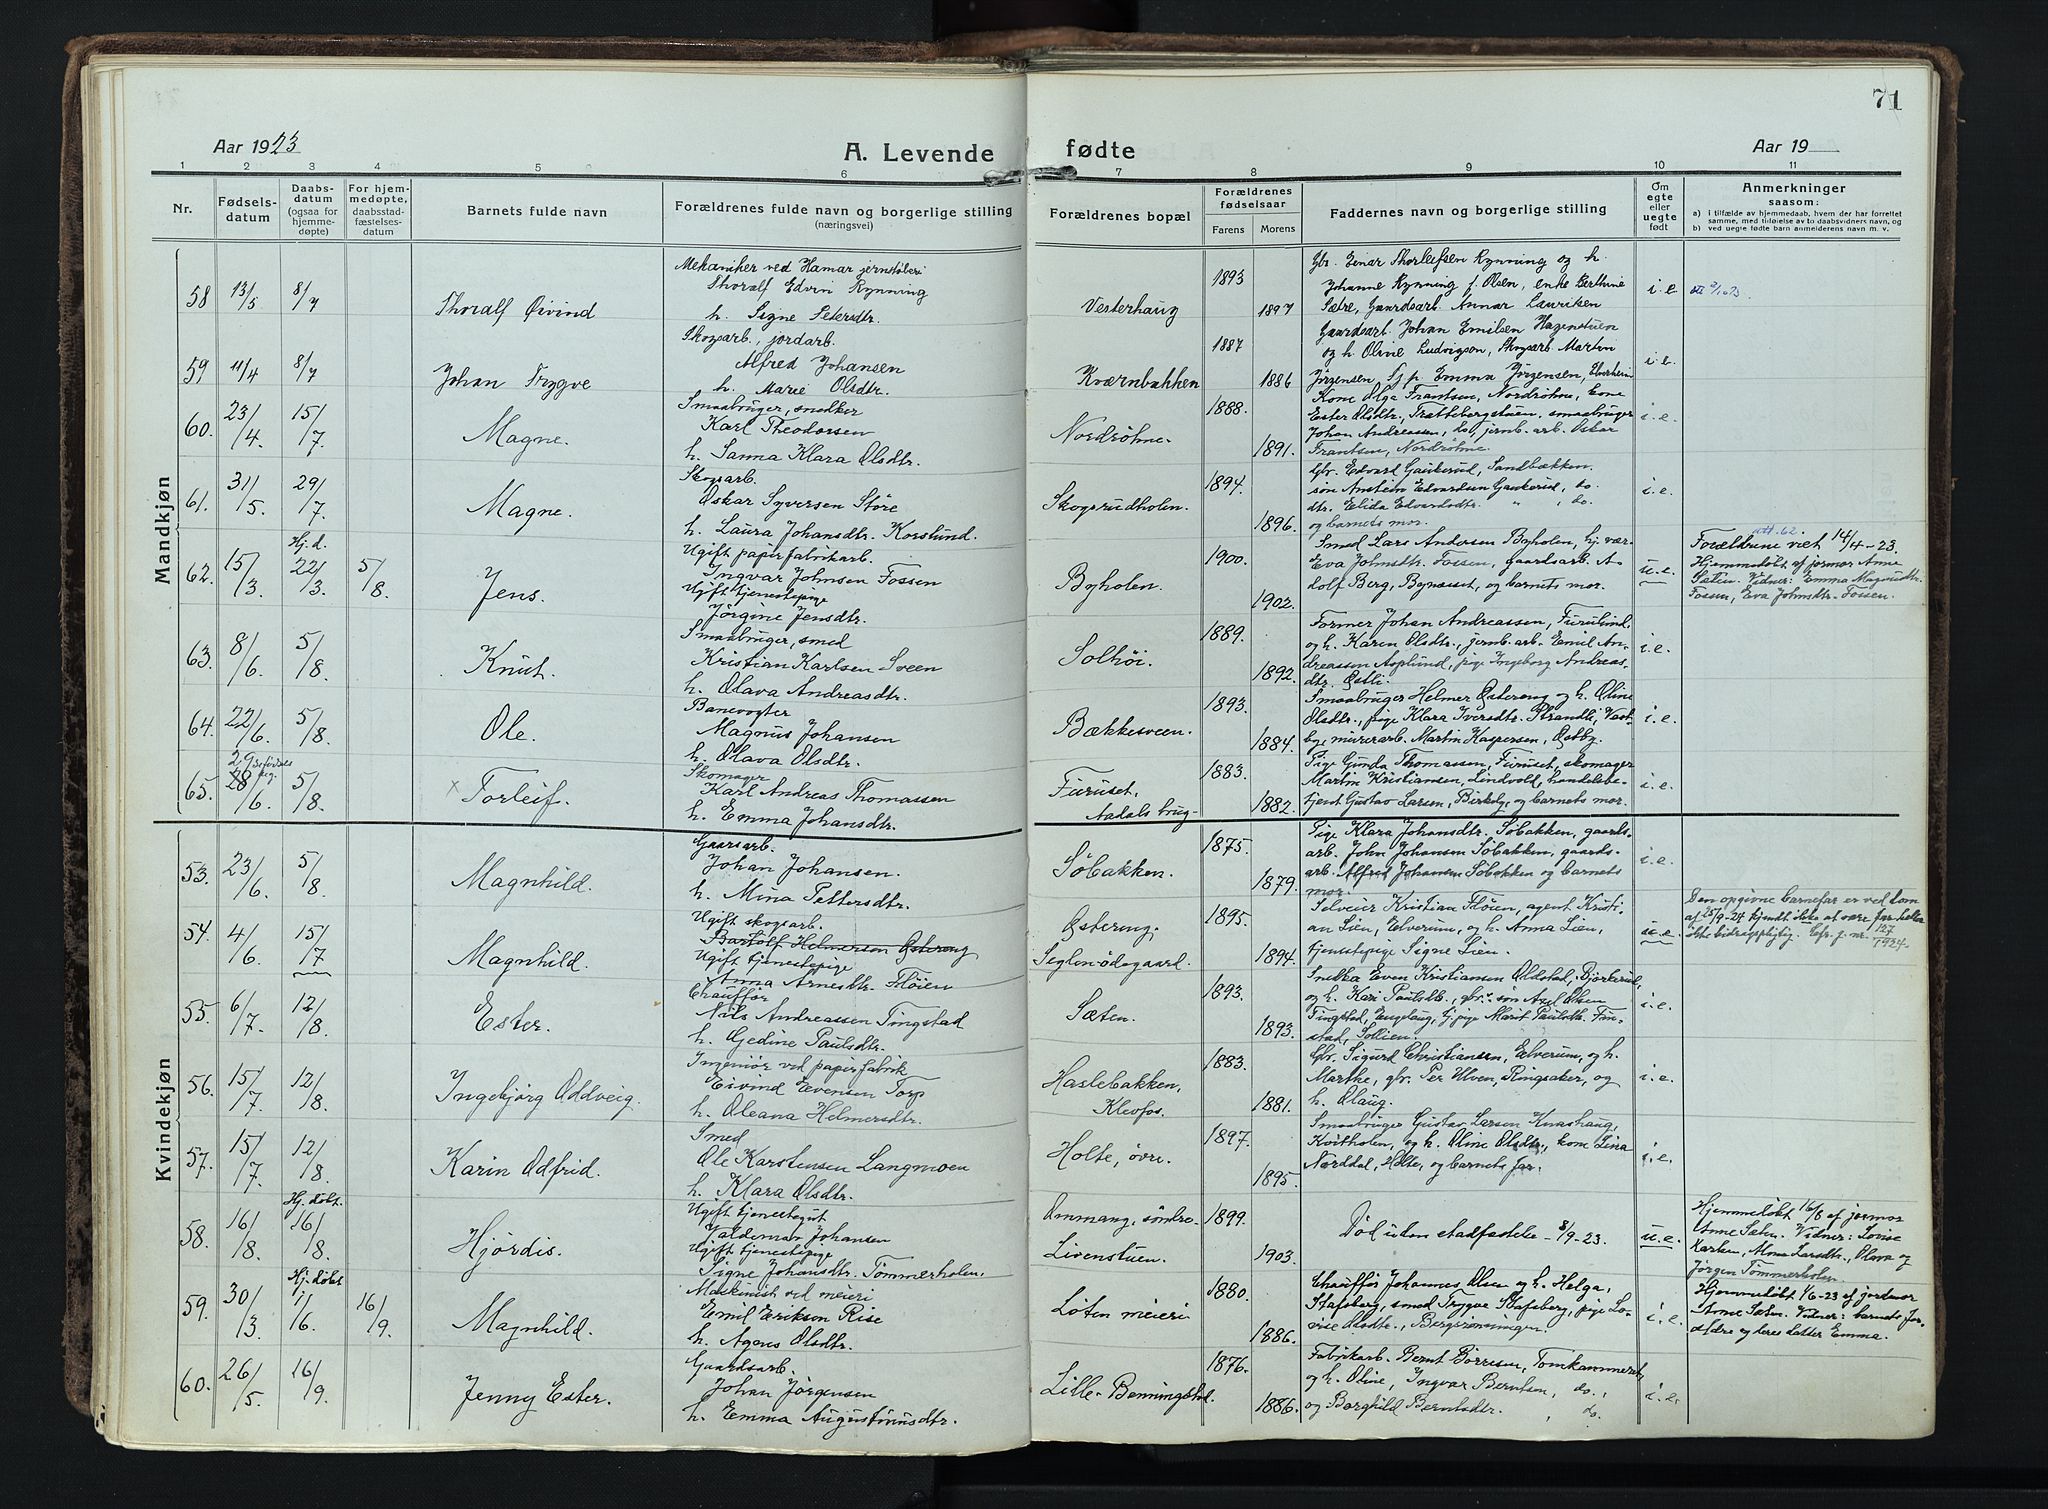 71
Aar 1923
A. Levende fødte
Aar 19
1 2 3 4 5 6 7 8 9 10 11
Nr.
Fødsels-
datum
Daabs-
datum
(ogsaa for
hjemme-
døpte)
For hjem-
medøpte,
daabsstad-
fæstelses-
datum
Barnets fulde navn
Forældrenes fulde navn og borgerlige stilling
(næringsvei)
Forældrenes bopæl
Forældrenes
fødselsaar
Farens Morens
Faddernes navn og borgerlige stilling
Om
egte
eller
uegte
født
Anmerkninger
saasom:
a) i tilfælde av hjemmedaab, hvem der har forrettet
samme, med tilføielse av to daabsvidners navn, og
b) ved uegte fødte barn anmelderens navn m. v.
Mandkjøn
58 13/5 8/7 Thoralf Øivind
Mekaniker ved Hamar jernstøberi
Thoralf Edvin Rynning
h. Signe Petersdtr.
Vesterhaug 1893 1897
Gbr. Einar Thorleifsen Rynning og h.
Johanne Rynning f. Olsen, enke Berthine
Sætre, Gaardsarb. Annar Lauritsen
i.e.
59 11/4 8/7 Johan Trygve
Skogsarb., jordarb.
Alfred Johansen
h. Marie Olsdtr.
Kværnbakken 1887 1886
Gaardsarb. Johan Emilsen Hagenstuen
og h. Oline Ludvigson, Skogsarb Martin
Jørgensen og p. Emma Jørgensen, Elverheim
i.e.
60. 23/4. 15/7 Magne.
Smaabruger, snedker
Karl Theodorsen
h. Sanna Klara Olsdtr.
Nordrøhne. 1888. 1891.
Kone Olga Frantsen, Nordrøhne, kone
Ester Olsdtr., Trættebergstuen, smaabruger
Johan Andreassen, do, jernb. arb. Oskar
Frantsen, Nordrøhne.
i.e.
61. 31/5. 29/7. Magne.
Skogsarb.
Oskar Syversen Støre
h. Laura Johansdtr. Korslund.
Skogsrudholen. 1894. 1896.
Gbr. Edvard Gaukerud, Sandbækken.
søn Anstein Edvardsen Gaukerud, do.
dtr. Elida Edvardsdtr. " , do.
og barnets mor.
i.e.
62. 15/3. Hj.d. 22/3. 5/8. Jens.
Ugift papirfabrikarb.
Ingvar Johnsen Fossen
Ugift tjenestepige
Jørgine Jensdtr.
Byholen. 1900. 1902.
Smed Lars Andersen Byholen, hj. vær.
Eva Johnsdtr. Fossen, gaardsarb. A-
dolf Berg, Bynæset, og barnets mor.
u.e.
Forældrene viet 14/4-23.
Hjemmedøbt af jormor Anne
Sæten. Vidner: Emma Magnusdtr.
Fossen, Eva Johnsdtr. Fossen.
63. 8/6. 5/8. Knut.
Smaabruger, smed
Kristian Karlsen Sveen
h. Olava Andreasdtr.
Solhøi. 1889. 1892.
Former Johan Andreassen, Furulund.
og h. Karen Olsdtr., jernb. arb. Emil An-
dreassen Asplund, pige Ingeborg Andreas-
dtr. Østli.
i.e.
64. 22/6. 5/8. Ole.
Banevogter
Magnus Johansen
h. Olava Olsdtr.
Bækkesveen. 1893. 1884.
Smaabruger Helmer Østereng og h. Oline
Olsdtr., pige Klara Iversdtr. Strandli, Vest-
by, murerarb. Martin Kaspersen, Østby.
i.e.
65. 28/6 29 5/8. × Torleif.
Skomager
Karl Andreas Thomassen
h. Emma Johansdtr.
Furuset, Aadals brug. 1883. 1882.
Pige Gunda Thomassen, Furuset, skomager
Martin Kristiansen, Lindvold, handelsbe-
tjent Gustav Larsen, Birkely, og barnets mor.
i.e.
Kvindekjøn
53. 23/6. 5/8. Magnhild.
Gaarsarb.
Johan Johansen.
h. Mina Pettersdtr.
Søbakken. 1875. 1879.
Pige Klara Johansdtr. Søbakken, gaards-
arb. John Johansen Søbakken, gaards-
arb. Alfred Johansen Søbakken og barnets
mor.
i.e.
54. 4/6. 15/7 Magnhild.
Ugift skogsarb.
Bartolf Helmersen Østereng
Ugift tjenestepige
Anna Arnesdtr. Fløien
Østereng. Seglen-ødegaard. 1895. 1894.
Selveier Kristian Fløien, agent Kristi-
an Lien, Elverum, og h. Anna Lien,
tjenestepige Signe Lien.
u.e.
Den opgivne barnefar er ved dom
af 25/9-24 kjendt ikke at være far heller
ikke bidragspligtig. Cfr. j. nr. 127/1924.
55. 6/7. 12/8. Ester.
Chauffør
Nils Andreassen Tingstad
h. Gedine Paulsdtr.
Sæten. 1893. 1893.
Snekk Even Kristiansen Oldstad, Bjerkerud,
og h. Kari Paulsdtr., gbr. søn Axel Olsen
Tingstad, Engelaug, hj. pige Marit Paulsdtr. Tin-
stad, Sollien.
i.e.
56. 15/7. 12/8. Ingebjørg Oddveig.
Ingeniør ved papirfabrik
Eivind Evensen Torp
h. Oleana Helmersdtr.
Haslebakken, Klevfos. 1883. 1881.
Gbr. Sigurd Christiansen, Elverum, og h.
Marthe, gbr. Per Ulven, Ringsaker, og
h. Olaug.
i.e.
57. 15/7. 12/8. Karin Odfrid.
Smed
Ole Karstensen Langmoen
h. Klara Olsdtr.
Holte, øvre. 1897. 1895.
Smaabruger Gustav Larsen Knashaug,
Kvitholen, og h. Oline Olsdtr., kone Lina
Nærddal, Holte, og barnets far.
i.e.
58. 16/8. Hj. døbt. 16/8. Hjørdis.
Ugift tjenestegut
Valdemar Johansen
Ugift tjenestepige
Signe Johansdtr. Tømmerholen.
Ommang, søndre. Livenstuen. 1899. 1903.
Død uten stadfæstelse 8/9-23.
u.e.
Hjemmedøbt 16/8 af jormor
Anne Sæten. Vidner: Lovise
Karlsen, Alma Larsdtr., Olava og
Jørgen Tømmerholen
59. 30/3. Hj. døbt 1/6. 16/9. Magnhild.
Maskinist ved meieri
Emil Eriksen Rise
h. Agnes Olsdtr.
Løten meieri 1880. 1886.
Chauffør Johannes Olsen og h. Helga,
Stafsberg, smed Trygve Stafsberg, pige Lo-
vise Olsdtr., Bergsrønningen.
i.e.
Hjemmedøbt 1/6-23 af jordmor
Anne Sæten. Vidner: barnets for-
ældre og deres datter Emma.
60. 26/5. 16/9. Jenny Ester.
Gaardsarb.
Johan Jørgensen
h. Emma Augustinusdtr.
Lille-Benningstad. 1876. 1886.
Fabrikarb. Bernt Børresen, Tomkammeret,
og h. Oline, Ingvar Berntsen, do.,
og Borghild Berntsdtr. , do.
i.e.